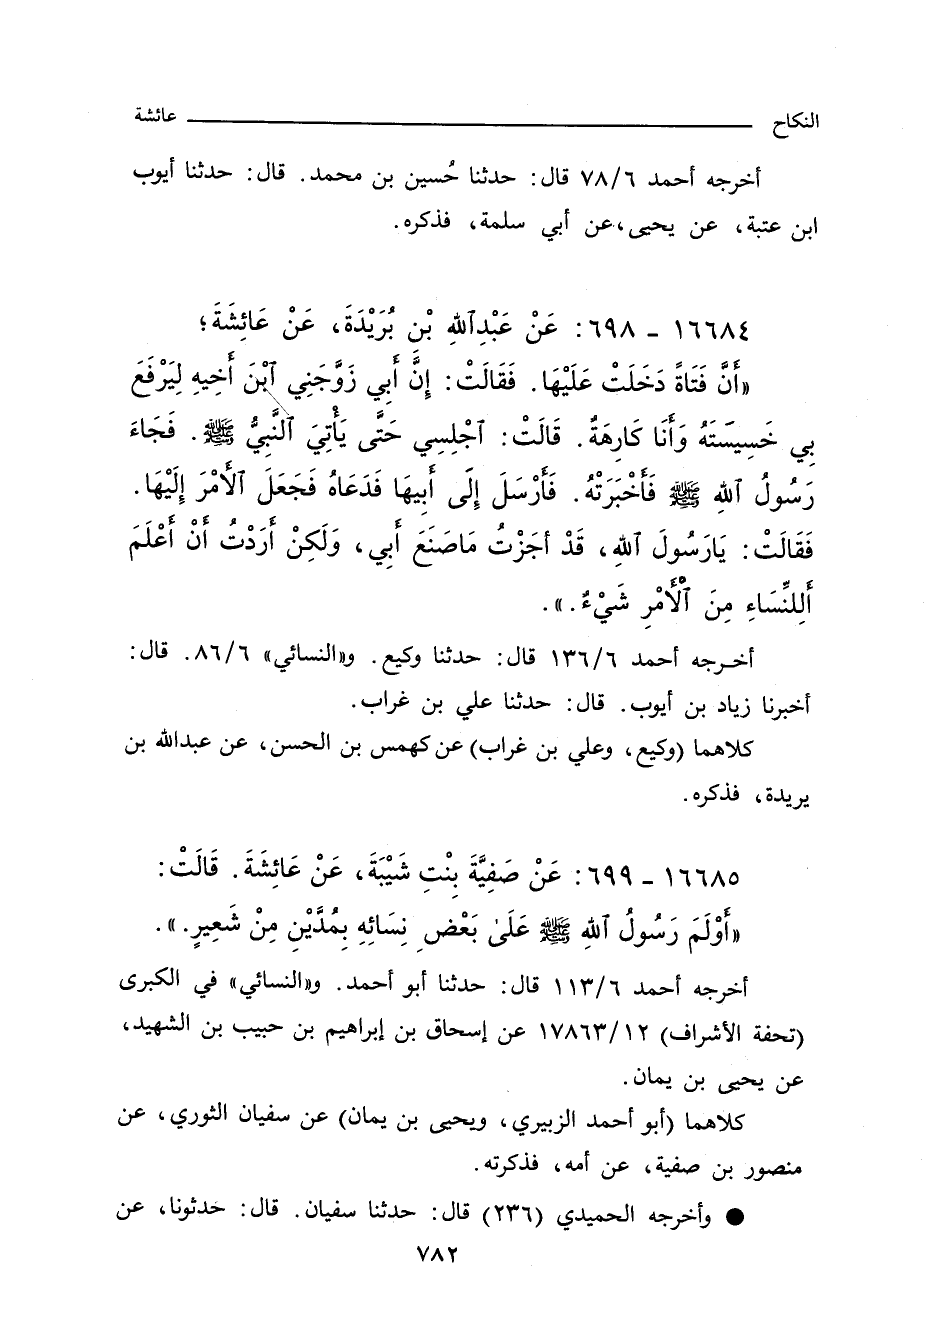 النكاح عائشة
أخرجه أحمد ٧٨/٦ قال: حدثنا حُسين بن محمد. قال: حدثنا أيوب
ابن عتبة، عن يحيى، عن أبي سلمة، فذكره.
١٦٦٨٤ - ٦٩٨: عَنْ عَبْدِاللهِ بْنِ بُرَيْدَةَ، عَنْ عَائِشَةَ؛
«أَنَّ فَتَاةً دَخَلَتْ عَلَيْهَا. فَقَالَتْ: إِنَّ أَبِي زَوَّجَنِي ٱبْنَ أَخِيهِ لِيَرْفَعَ
بِي خَسِيسَتَهُ وَأَنَا كَارِهَةٌ. قَالَتْ: ٱجْلِسِي حَتَّى يَأْتِيَ ٱلنَّبِيُّ ﷺ. فَجَاءَ
رَسُولُ ٱللهِ ﷺ فَأَخْبَرَتْهُ. فَأَرْسَلَ إِلَى أَبِيهَا فَدَعَاهُ فَجَعَلَ ٱلأَمْرَ إِلَيْهَا.
فَقَالَتْ: يَارَسُولَ ٱللهِ، قَدْ أَجَزْتُ مَاصَنَعَ أَبِي، وَلَكِنْ أَرَدْتُ أَنْ أَعْلَمَ
أَلِلنِّسَاءِ مِنَ ٱلأَمْرِ شَيْءٌ.».
أخرجه أحمد ١٣٦/٦ قال: حدثنا وكيع. و«النسائي» ٨٦/٦. قال:
أخبرنا زياد بن أيوب. قال: حدثنا علي بن غراب.
كلاهما (وكيع، وعلي بن غراب) عن كهمس بن الحسن، عن عبدالله بن
يريدة، فذكره.
١٦٦٨٥ - ٦٩٩: عَنْ صَفِيَّةَ بِنْتِ شَيْبَةَ، عَنْ عَائِشَةَ. قَالَتْ:
«أَوْلَمَ رَسُولُ ٱللهِ ﷺ عَلَىٰ بَعْضِ نِسَائِهِ بِمُدَّيْنِ مِنْ شَعِيرٍ.».
أخرجه أحمد ١١٣/٦ قال: حدثنا أبو أحمد. و«النسائي» في الكبرى
(تحفة الأشراف) ١٧٨٦٣/١٢ عن إسحاق بن إبراهيم بن حبيب بن الشهيد،
عن يحيى بن يمان.
كلاهما (أبو أحمد الزبيري، ويحيى بن يمان) عن سفيان الثوري، عن
منصور بن صفية، عن أمه، فذكرته.
● وأخرجه الحميدي (٢٣٦) قال: حدثنا سفيان. قال: حدثونا، عن
٧٨٢